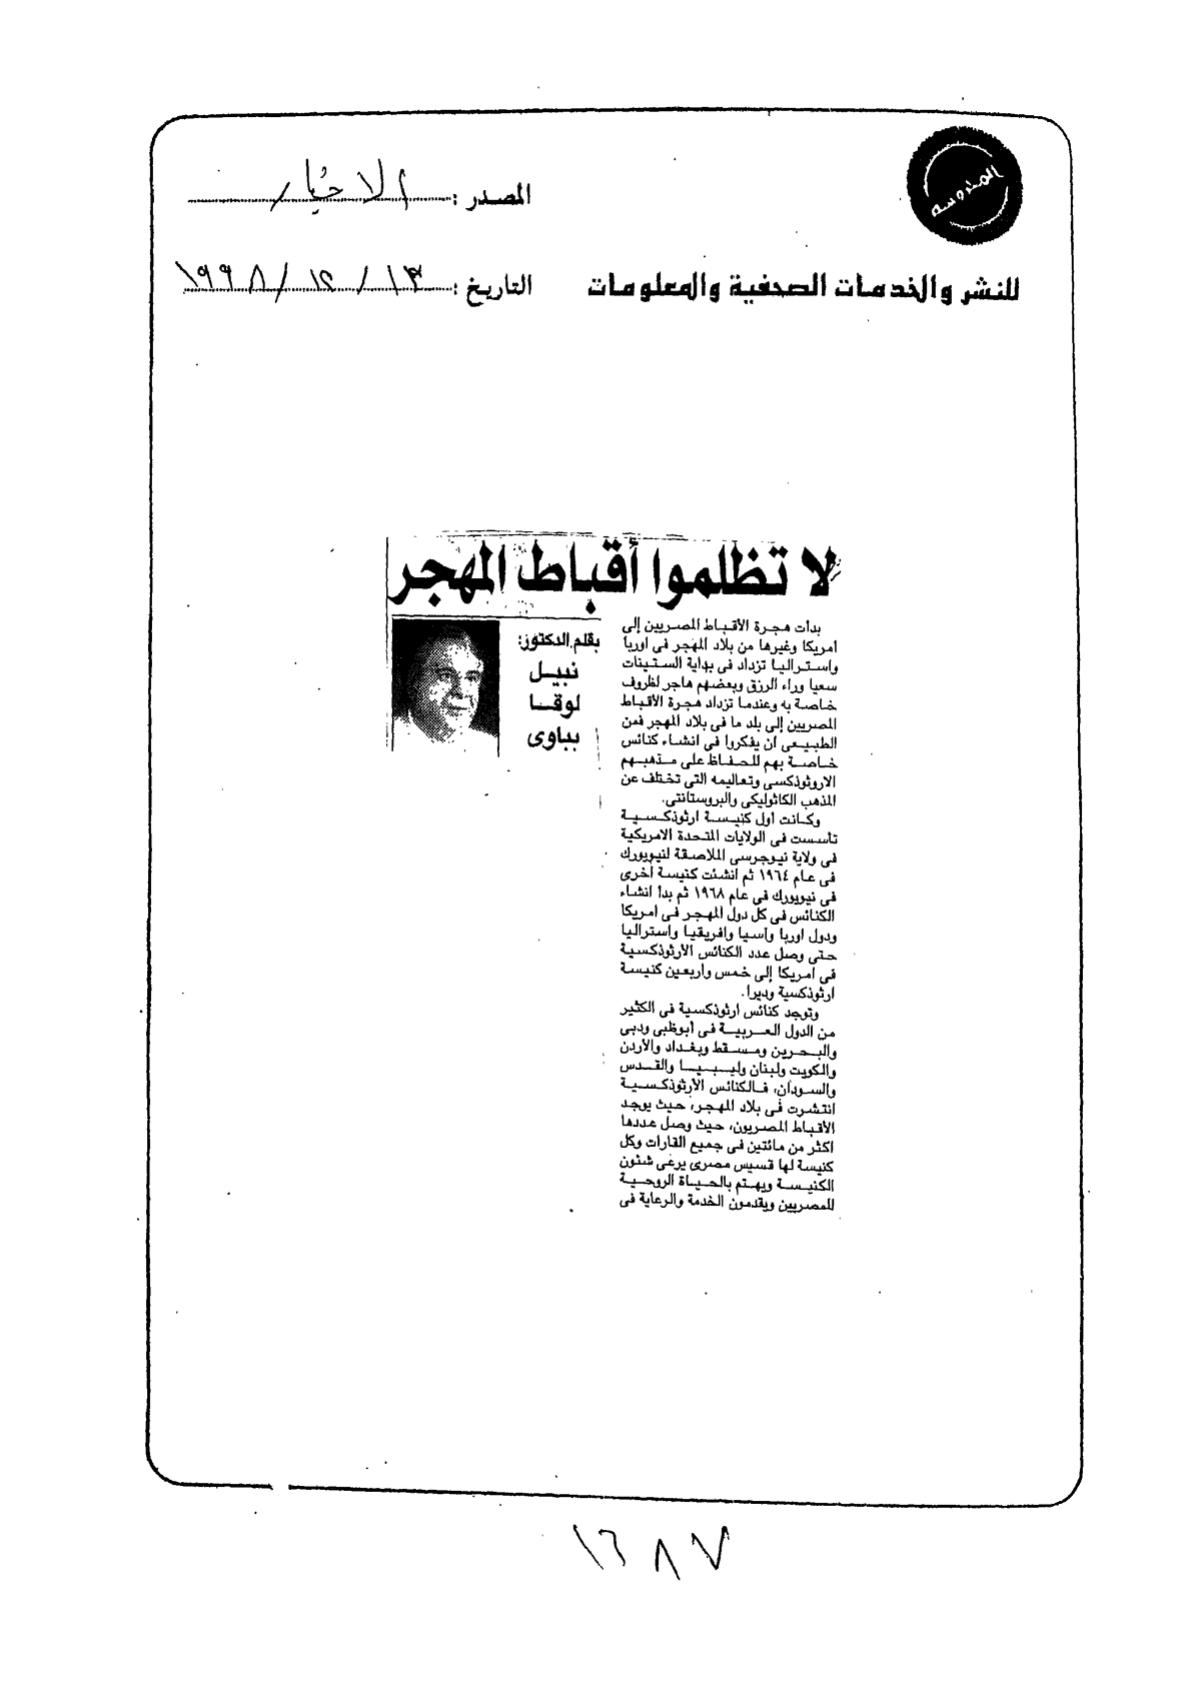 المصدر : الاخبار
للنشر والخدمات الصحفية والمعلومات
التاريخ : ١٣ / ١٢ / ١٩٩٨
لا تظلموا أقباط المهجر
بقلم الدكتور:
نبيل
لوقا
بباوى
بدأت هجرة الأقباط المصريين إلى
أمريكا وغيرها من بلاد المهجر فى اوربا
واستراليا تزداد فى بداية الستينات
سعيا وراء الرزق وبعضهم هاجر لظروف
خاصة به وعندما تزداد هجرة الأقباط
المصريين إلى بلد ما فى بلاد المهجر فمن
الطبيعى أن يفكروا فى انشاء كنائس
خاصة بهم للحفاظ على مذهبهم
الاروثوذكسى وتعاليمه التى تختلف عن
المذهب الكاثوليكى والبروستانتى.
وكانت أول كنيسة ارثوذكسية
تأسست فى الولايات المتحدة الامريكية
فى ولاية نيوجرسى الملاصقة لنيويورك
فى عام ١٩٦٤ ثم انشئت كنيسة أخرى
فى نيويورك فى عام ١٩٦٨ ثم بدأ انشاء
الكنائس فى كل دول المهجر فى أمريكا
ودول اوربا وآسيا وافريقيا واستراليا
حتى وصل عدد الكنائس الأرثوذكسية
فى أمريكا إلى خمس واربعين كنيسة
ارثوذكسية وديرا.
وتوجد كنائس ارثوذكسية فى الكثير
من الدول العربية فى أبوظبى ودبى
والبحرين ومسقط وبغداد والأردن
والكويت ولبنان وليبيا والقدس
والسودان، فالكنائس الأرثوذكسية
انتشرت فى بلاد المهجر، حيث يوجد
الأقباط المصريون، حيث وصل عددها
اكثر من مائتين فى جميع القارات وكل
كنيسة لها قسيس مصرى يرعى شئون
الكنيسة ويهتم بالحياة الروحية
للمصريين ويقدمون الخدمة والرعاية فى
١٦٨٧